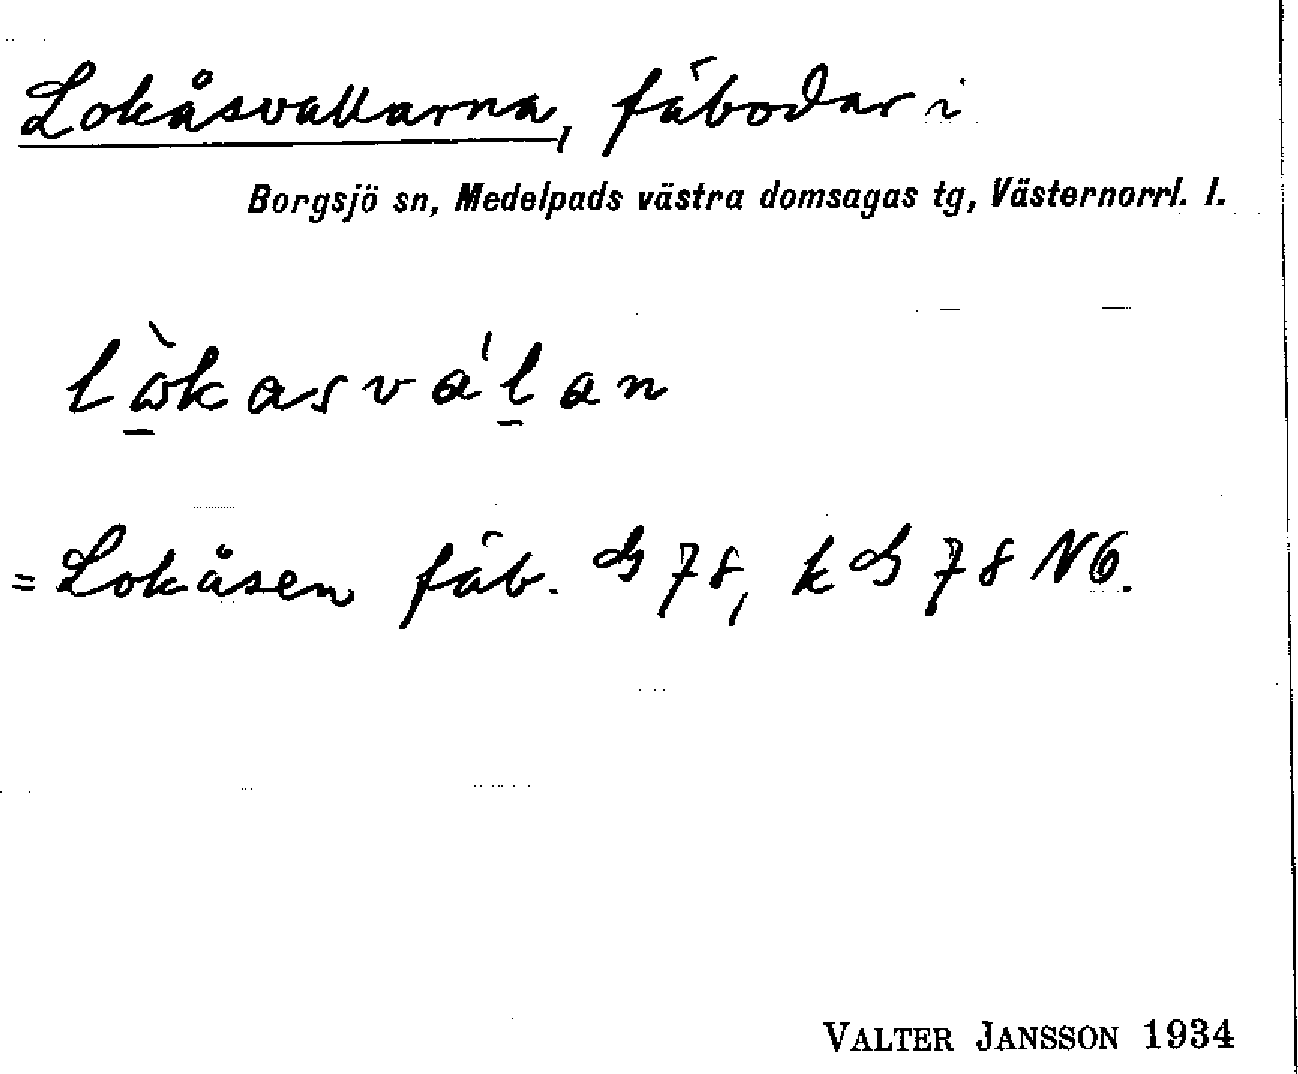 Lokåsvallarna, fäbodar i
Borgsjö sn, Medelpads västra domsagas tg, Västernorrl. l.
lò̠kasvál̠an
= Lokåsen fäb. G 78, k G 78 NO.
VALTER JANSSON 1934